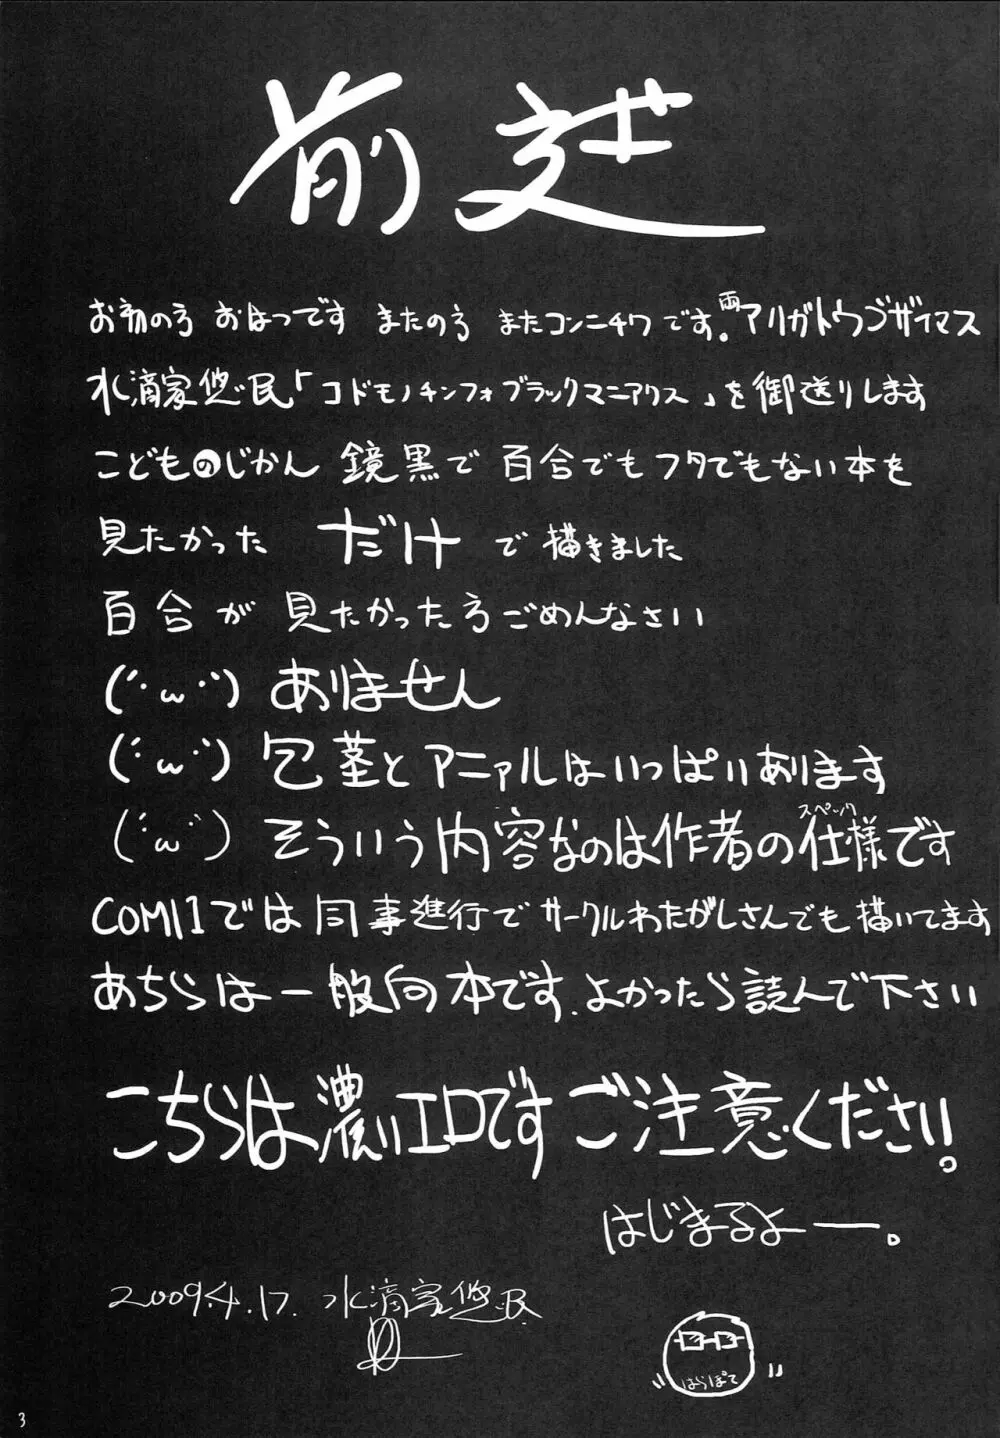 前述
お初の方 おはつです またの方 またコンニチワです。両アリガトウゴザイマス
水滴家悠民「コドモノチンフォブラックマニアクス」を御送りします
こどものじかん 鏡黒で 百合でもフタでもない本を
見たかった だけ で描きました
百合が 見たかった方ごめんなさい
(´・ω・`) ありません
(´・ω・`) 包茎とアニァルはいっぱいあります
(´・ω・`) そういう内容なのは作者の仕様です
スペック
COMI1では同事進行でサークルわたがしさんでも描いてます
あちらは一般向本です.よかったら読んで下さい
こちらは濃いエロです ご注意ください。
はじまるよー。
2009.4.17. 水滴家悠民
はらぽて
3